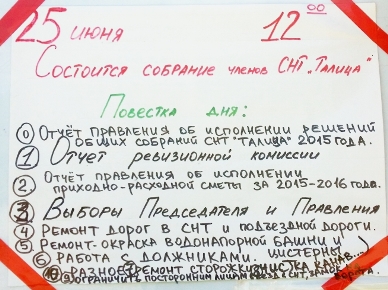 25 июня 12 00
Состоится собрание членов СНТ „Талица"
Повестка дня:
0 Отчёт правления об исполнении решений
общих собраний СНТ "Талица" 2015 года.
1 Отчет ревизионной комиссии
2 Отчёт правления об исполнении
приходно-расходной сметы за 2015-2016 года.
3 Выборы Председателя и Правления
4 Ремонт дорог в СНТ и подъездной дороги.
5 Ремонт-окраска водонапорной башни и
цистерны
6 Работа с должниками.
10 Разное (ремонт сторожки, чистка канав...)
ограничить посторонним лицам въезд в СНТ,
ворота.